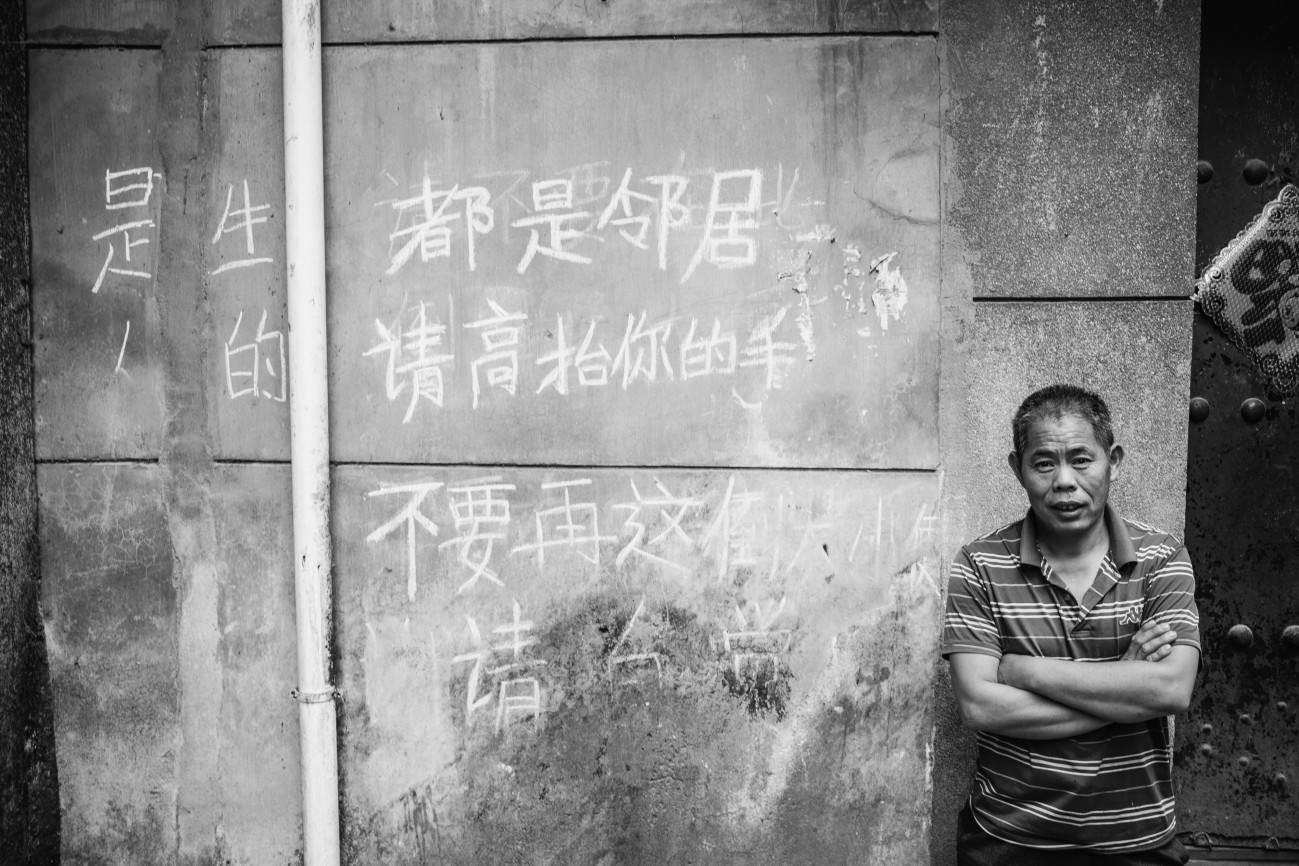 是 生 都是邻居
人 的 请高抬你的手
不要再这倒大小
请